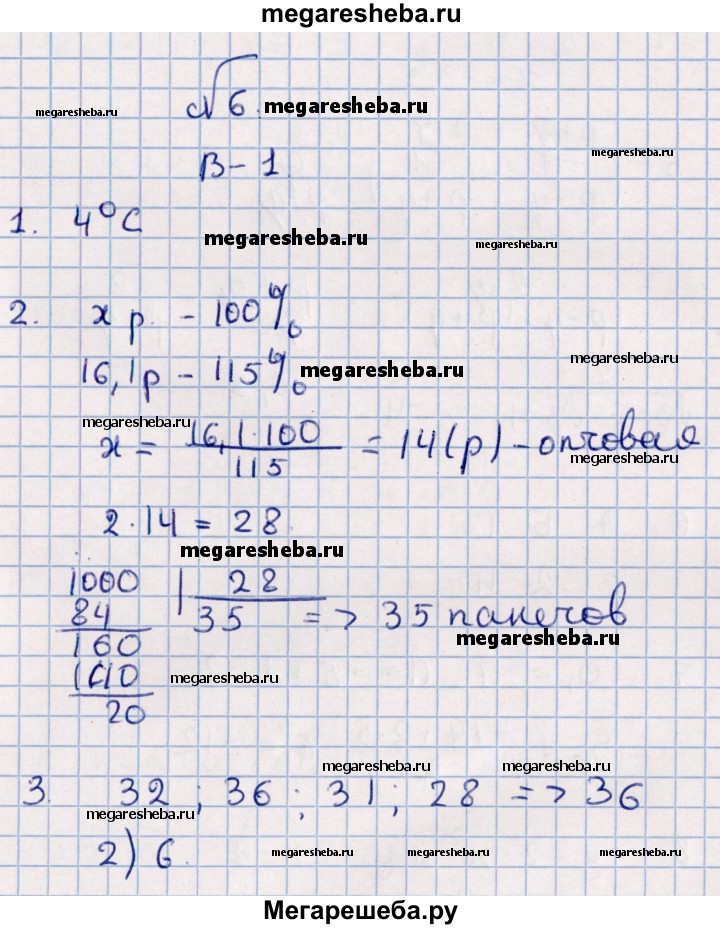 megaresheba.ru
№ 6. megaresheba.ru
megaresheba.ru
В-1.
megaresheba.ru
1. 4°C
megaresheba.ru
megaresheba.ru
2. x р. - 100%
16,1р - 115%
megaresheba.ru
megaresheba.ru
megaresheba.ru
x = 16,1·100 / 115 = 14(р) - оптовая
megaresheba.ru
2·14 = 28.
megaresheba.ru
1000 | 28
84 35 => 35 пакетов
megaresheba.ru
160
140
megaresheba.ru
20
megaresheba.ru
megaresheba.ru
3. 32 ; 36 ; 31 ; 28 => 36
megaresheba.ru
2) 6.
megaresheba.ru megaresheba.ru megaresheba.ru
Мегарешеба.ру